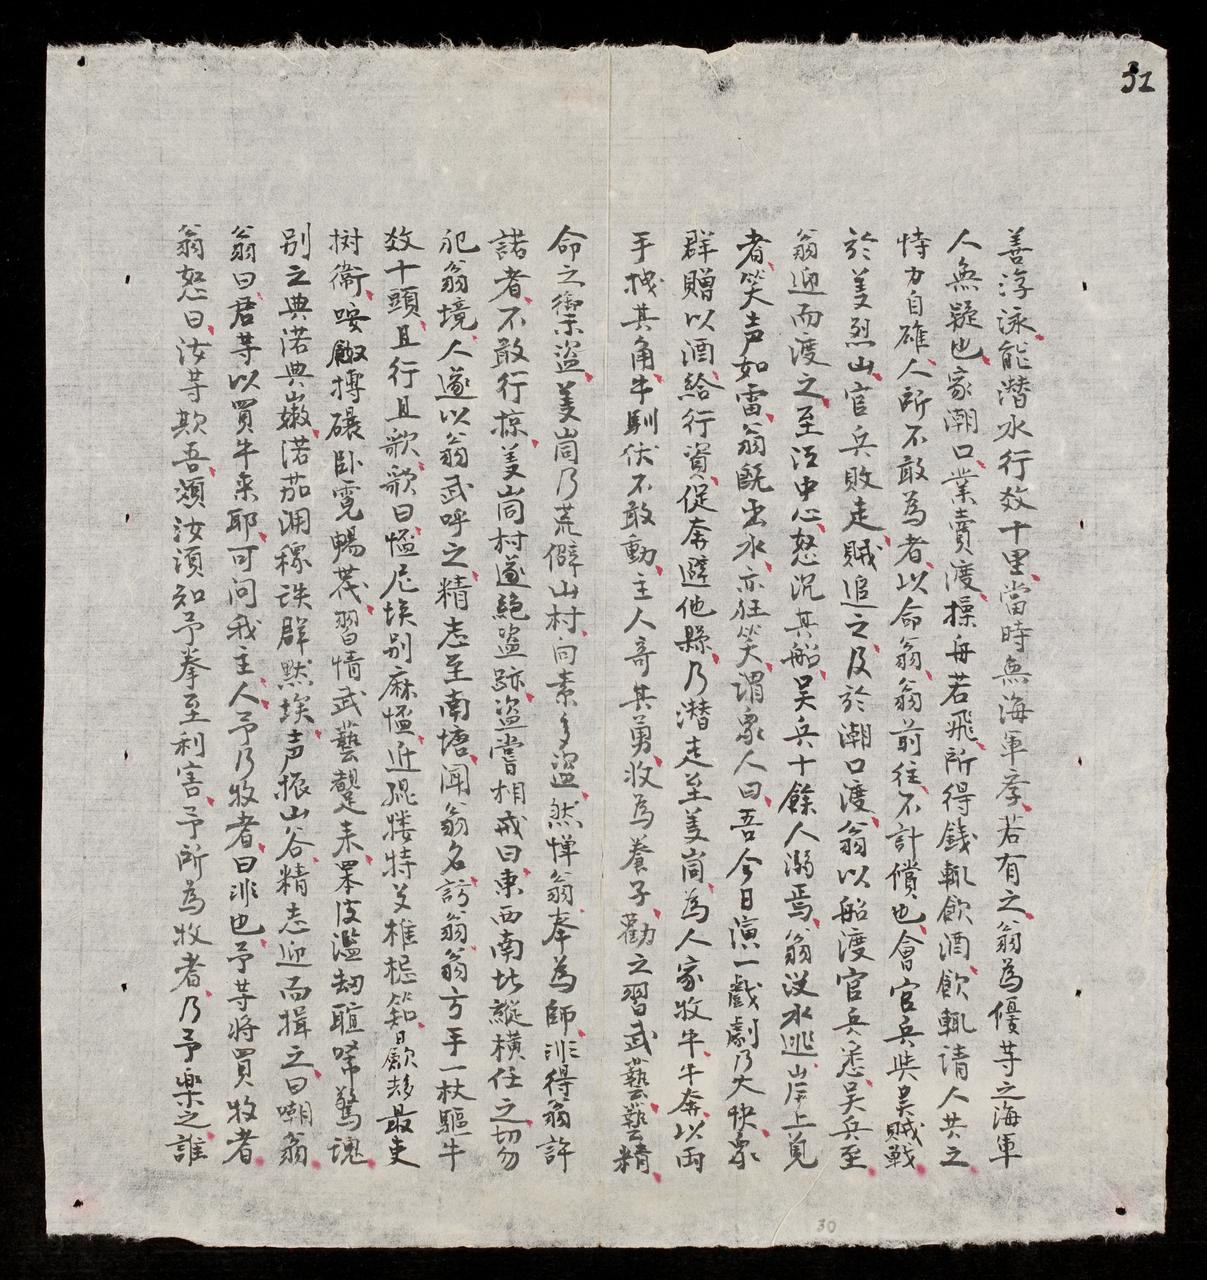 32
善浮泳能潜水行效十里當時無海軍孝若有之翁為優等之海軍
人無疑也家潮口業賣渡操舟若飛所得錢輒飲酒飲輒請人共之
恃力自雄人所不敢為者以命翁翁前往不計償也會官兵與吳賊戰
於美烈山官兵敗走賊追之及於潮口渡翁以船渡官兵悉吳兵至
翁迎而渡之至江中心怒沉其船吳兵十餘人溺焉翁没水逃岸上見
者笑声如雷翁既出水亦狂笑謂衆人曰吾今日演一戲劇乃大快衆
群贈以酒給行資促奔避他縣乃潜走至美峝為人家牧牛牛奔以両
手拽其角牛馴伏不敢動主人奇其勇收為養子勸之習武藝藝精
命之禦盗美峝乃荒僻山村向素多盗然憚翁奉為師非得翁許
諾者不敢行掠美峝村遂絕盗跡盗嘗相戒曰東西南北縱橫任之切勿
犯翁境人遂以翁武呼之精志至南塘闻翁名訪翁翁方手一杖驅牛
效十頭且行且歌歌曰 尼埃别麻 近 特 椎 最吏
树衛 搏碾卧 暢 習情武藝 耒 皮濫刼 驚魂
别之典渃典嫩渃茄 稼 群黙埃声振山谷精志迎而揖之曰嘲翁
翁曰君等以買牛来耶可問我主人予乃牧者曰非也予等將買牧者
翁怒曰汝等欺吾須汝須知予拳至利害予所為牧者乃予樂之誰
30